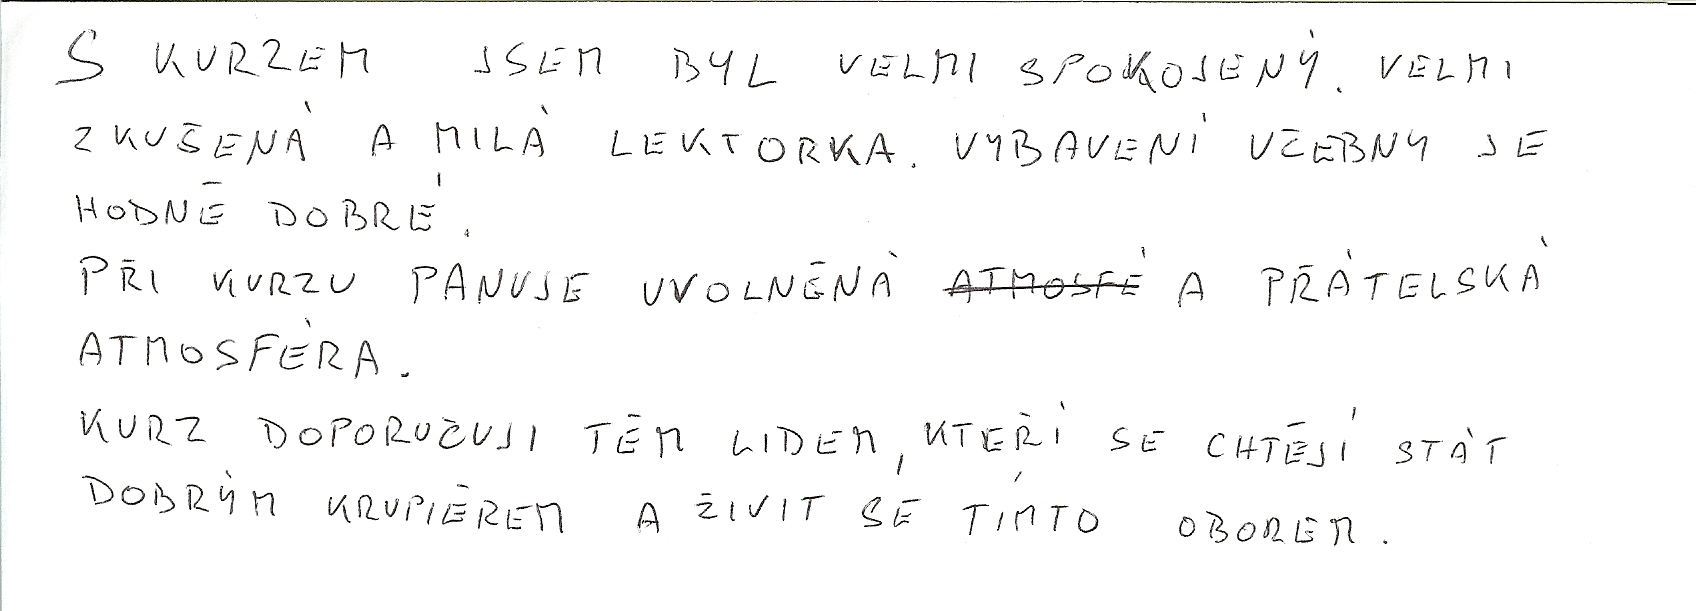 S KURZEM JSEM BYL VELMI SPOKOJENÝ. VELMI
ZKUŠENÁ A MILÁ LEKTORKA. VYBAVENÍ UČEBNY JE
HODNĚ DOBRÉ.
PŘI KURZU PANUJE UVOLNĚNÁ ATMOSFÉ A PŘÁTELSKÁ
ATMOSFÉRA.
KURZ DOPORUČUJI TĚM LIDEM, KTEŘÍ SE CHTĚJÍ STÁT
DOBRÝM KRUPIÉREM A ŽIVIT SE TÍMTO OBOREM.